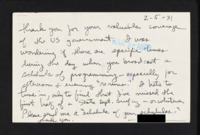 2-5-91
Thank you for your valuable coverage
of the US government. I was
wondering if there are specific times
during the day when you broadcast a
schedule of programming especially for
afternoon & evening "reruns". I hate to
come in and find that I've missed the
first half of a State Dept. briefing
Please send me a schedule of your schedules!
Thank you.